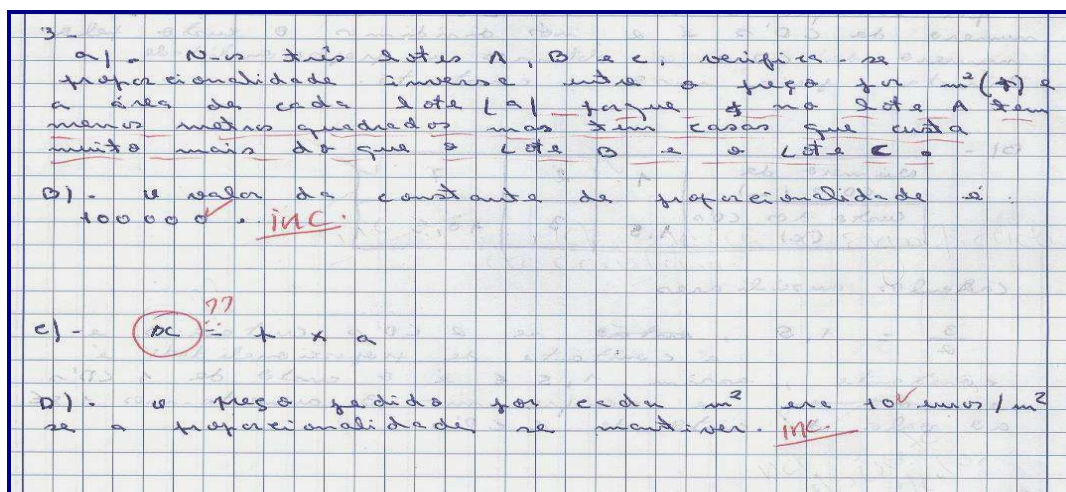 3-
a) - Nos três lotes A, B e c, verifica-se
proporcionalidade inversa entre o preço por m² (p) e
a área de cada lote (a) porque no lote A tem
menos metros quadrados mas tem casas que custa
muito mais do que o lote B e o Lote C.
B) - o valor da constante de proporcionalidade é
100000. inc.
??
c) - = p x a
D) - o preço pedido por cada m² era 10 euros/m²
se a proporcionalidade se mantiver. inc.